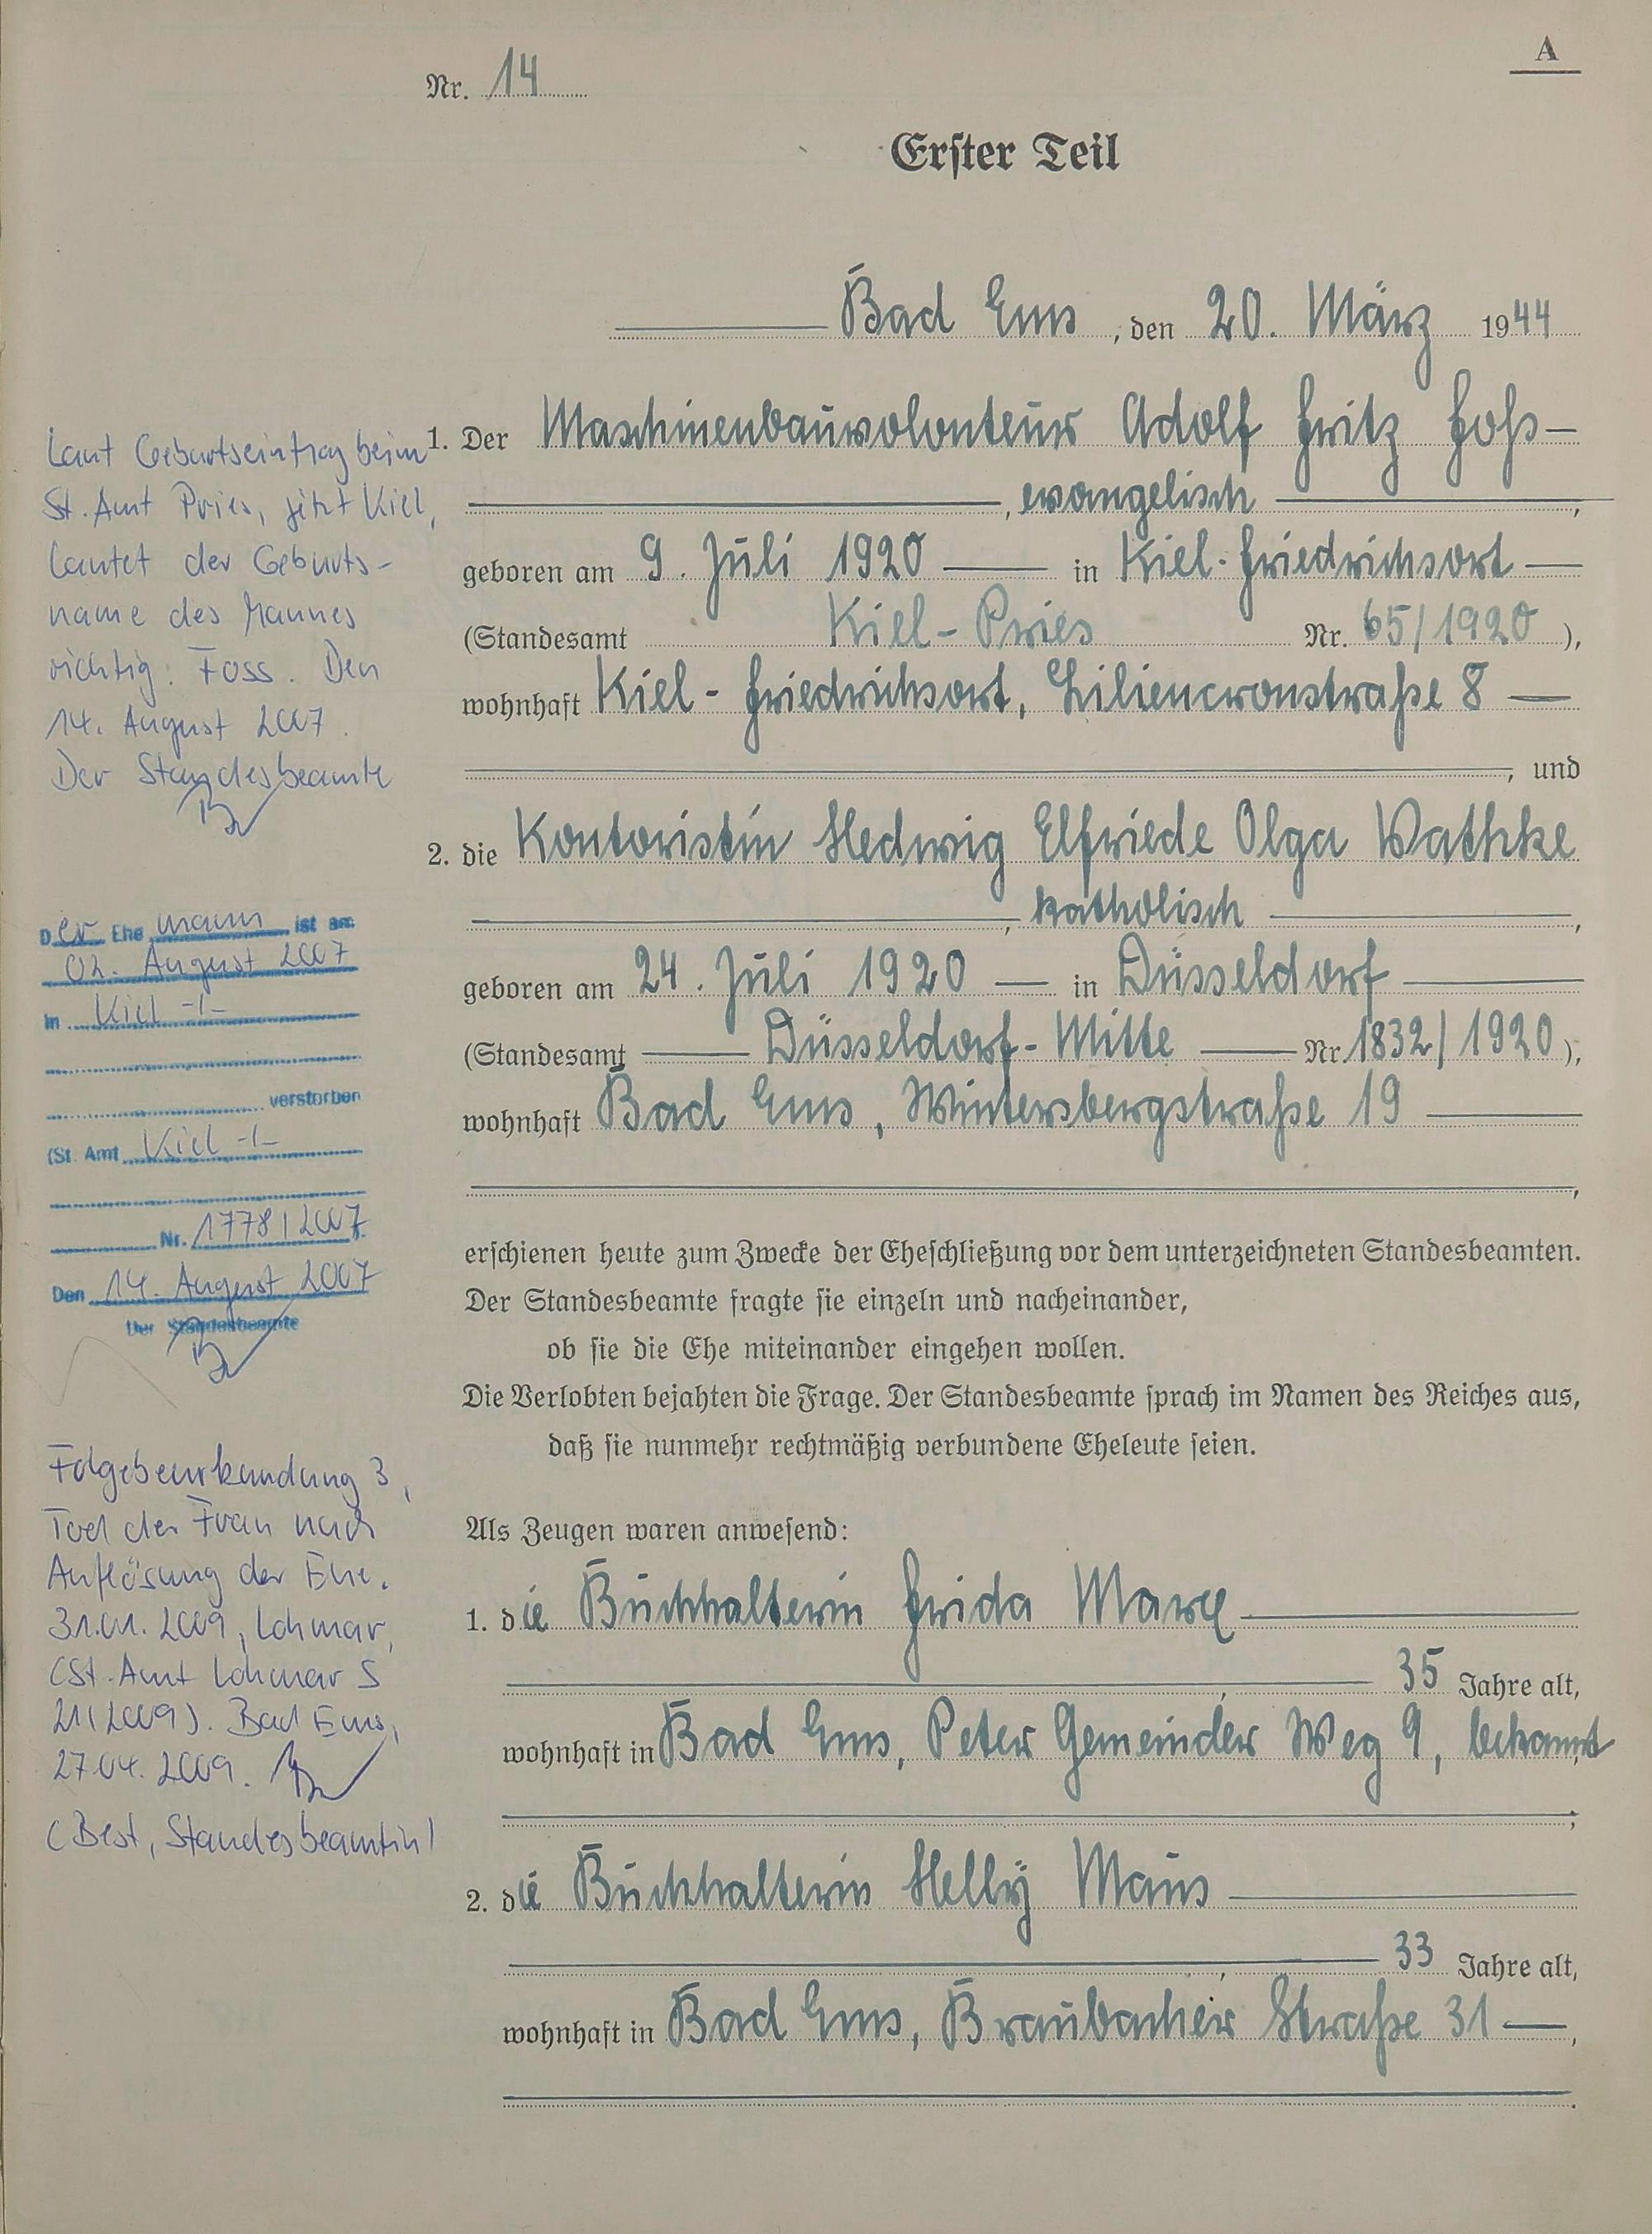 A
Nr. 14
Erster Teil
Bad Ems, den 20. März 1944
1. Der Maschinenbauvolonteur Adolf Fritz Foß
, evangelisch,
geboren am 9. Juli 1920 in Kiel-Friedrichsort
(Standesamt Kiel-Pries Nr. 65/1920),
wohnhaft Kiel-Friedrichsort, Liliencronstraße 8
, und
2. die Kontoristin Hedwig Elfriede Olga Wathke
, katholisch,
geboren am 24. Juli 1920 in Düsseldorf
(Standesamt Düsseldorf-Mitte Nr. 1832/1920),
wohnhaft Bad Ems, Wintersbergstraße 19
,
erschienen heute zum Zwecke der Eheschließung vor dem unterzeichneten Standesbeamten.
Der Standesbeamte fragte sie einzeln und nacheinander,
ob sie die Ehe miteinander eingehen wollen.
Die Verlobten bejahten die Frage. Der Standesbeamte sprach im Namen des Reiches aus,
daß sie nunmehr rechtmäßig verbundene Eheleute seien.
Als Zeugen waren anwesend:
1. die Buchhalterin Frida Marx
, 35 Jahre alt,
wohnhaft in Bad Ems, Peter Gemeinder Weg 9, bekannt
;
2. die Buchhalterin Helly Maus
, 33 Jahre alt,
wohnhaft in Bad Ems, Braubacher Straße 31,
.
Laut Geburtseintrag beim
St. Amt Pries, jetzt Kiel,
lautet der Geburts-
name des Mannes
richtig: Foss. Den
14. August 2007.
Der Standesbeamte
Der Ehemann ist am
02. August 2007
in Kiel -/-
verstorben
(St. Amt Kiel -/-
Nr. 1778/2007).
Den 14. August 2007
Der Standesbeamte
Folgebeurkundung 3,
Tod der Frau nach
Auflösung der Ehe.
31.01.2009, Lohmar,
(St. Amt Lohmar S
21/2009). Bad Ems,
27.04.2009.
(Best, Standesbeamtin)